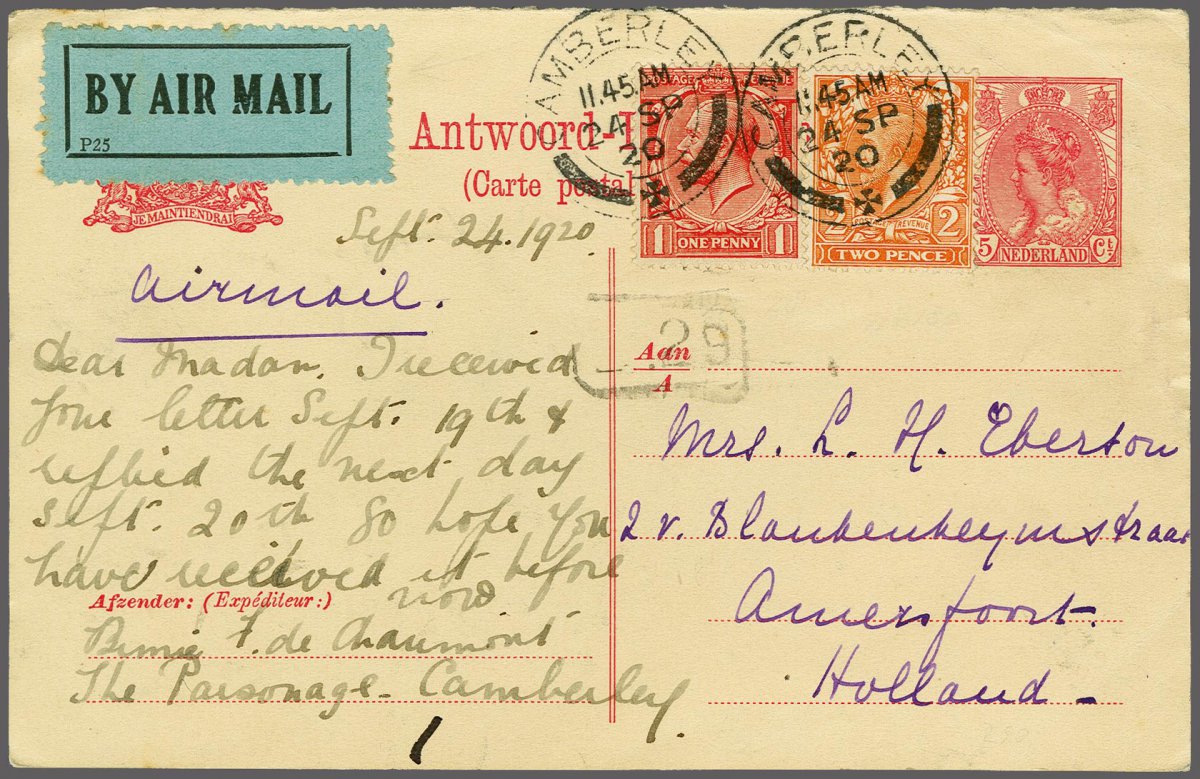 BY AIR MAIL
P25
JE MAINTIENDRAI
Antwoord-
(Carte postal
CAMBERLEY
11.45 AM
24 SP
20
CAMBERLEY
11.45 AM
24 SP
20
POSTAGE
1 ONE PENNY 1
REVENUE
2 TWO PENCE 2
5 Ct
NEDERLAND
Sept. 24. 1920
Airmail.
Dear Madam, I received
your letter Sept. 19th &
replied the next day
Sept. 20th so hope you
have received it before
now
29
Aan
A
Mrs. L. H. Eberson
2 v. Blankenheymstraat
Amersfoort.
Holland -
Afzender: (Expéditeur:)
F. de Chaumont
The Parsonage - Camberley.
1